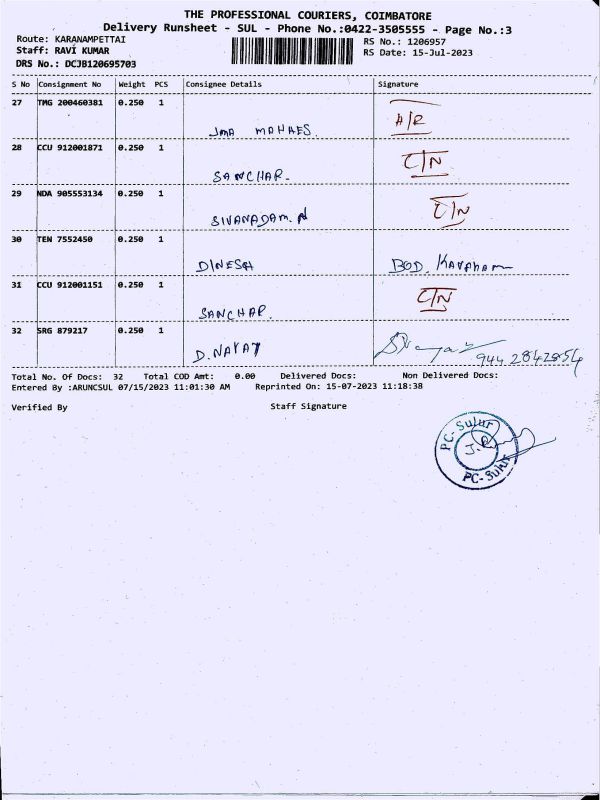 THE PROFESSIONAL COURIERS, COIMBATORE
Delivery Runsheet - SUL - Phone No.:0422-3505555 - Page No.:3
Route: KARANAMPETTAI RS No.: 1206957
Staff: RAVI KUMAR RS Date: 15-Jul-2023
DRS No.: DCJB120695703
S No Consignment No Weight PCS Consignee Details Signature
27 TMG 200460381 0.250 1
UMA MAHAES. A/R
28 CCU 912001871 0.250 1 C/N
SANCHAR.
29 NDA 905553134 0.250 1 C/N
SIVANADAM. N
30 TEN 7552450 0.250 1
DINESH BOD.
31 CCU 912001151 0.250 1 C/N
SANCHAR.
32 SRG 879217 0.250 1
D. 944 2842854
Total No. Of Docs: 32 Total COD Amt: 0.00 Delivered Docs: Non Delivered Docs:
Entered By :ARUNCSUL 07/15/2023 11:01:30 AM Reprinted On: 15-07-2023 11:18:38
Verified By Staff Signature
PC-Sulur
PC-Sulur